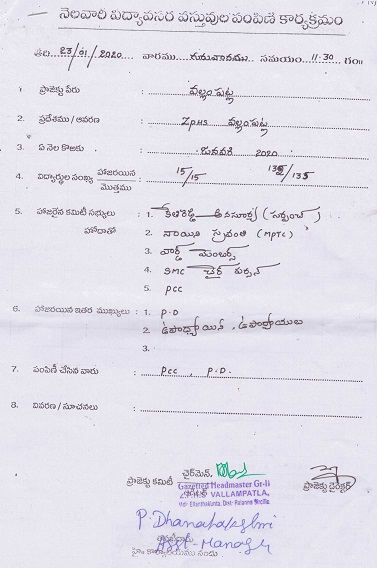 నెలవారి విద్యావసర వస్తువుల పంపిణి కార్యక్రమం
తేది. 23/01/2020 వారము. గురువారము. సమయం. 11-30 గం॥
1. ప్రాజెక్టు పేరు : వల్లంపట్ల
2. ప్రదేశము / ఆవరణ : ZPHS వల్లంపట్ల
3. ఏ నెల కొఱకు : జనవరి 2020
4. విద్యార్థుల సంఖ్య హాజరయిన మొత్తము : 15/15 135/135
5. హాజరైన కమిటీ సభ్యులు : 1. అనసూర్య (సర్పంచ్)
హోదాతో 2. సాయిని స్రవంతి (MPTC)
3. వార్డ్ మెంబర్స్
4. SMC చైర్ పర్సన్
5. PCC
6. హాజరయిన ఇతర ముఖ్యులు : 1. P.D
2. ఉపాధ్యాయిని, ఉపాధ్యాయులు
3.
7. పంపిణీ చేసిన వారు : PCC, P.D.
8. వివరణ / సూచనలు :
ప్రాజెక్టు కమిటీ చైర్‌మెన్.
ప్రాజెక్టు డైరెక్టర్
Gazetted Headmaster Gr-II
VALLAMPATLA,
Mdl: Ellanthakunta, Dist: Rajanna Sircilla
P. Dhanalakshmi
Asst-Manager